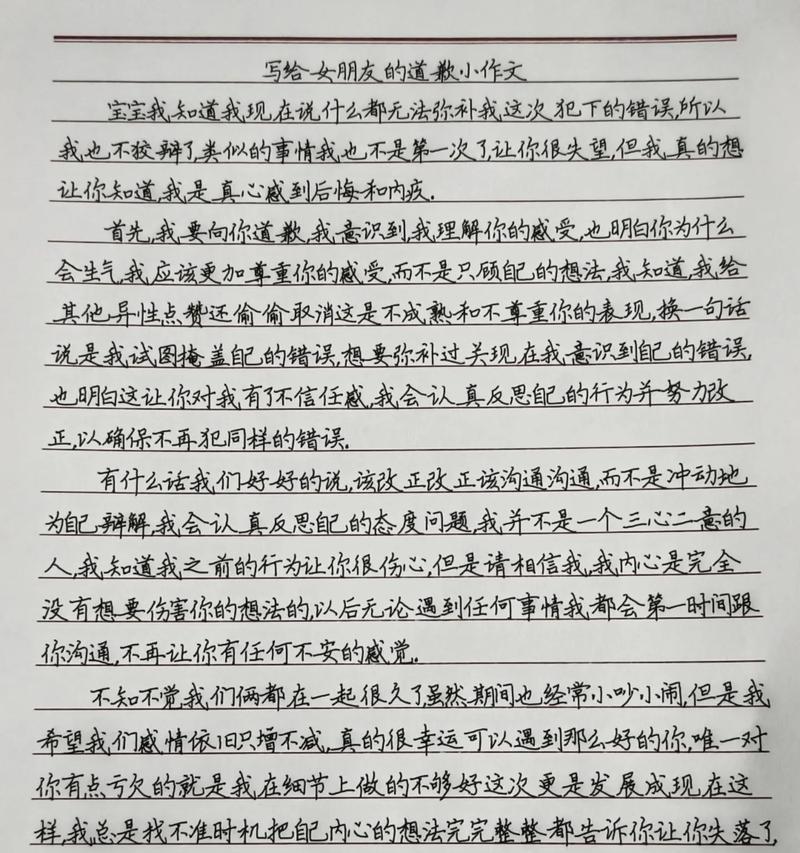 写给女朋友的道歉小作文
宝宝我知道我现在说什么都无法弥补我这次犯下的错误,所以
我也不狡辩了类似的事情我也不是第一次了,让你很失望,但我真的想
让你知道,我是真心感到后悔和内疚.
首先,我要向你道歉,我意识到,我理解你的感受,也明白你为什么
会生气,我应该更加尊重你的感受,而不是只顾自己的想法,我知道,我给
其他异性点赞还偷偷取消这是不成熟和不尊重你的表现,换一句话
说是我试图掩盖自己的错误,想要弥补过关现在我意识到自己的错误,
也明白这让你对我有了不信任感,我会认真反思自己的行为并努力改
正,以确保不再犯同样的错误.
有什么话我们好好的说,该改正改正该沟通沟通,而不是冲动地
为自己辩解,我会认真反思自己的态度问题,我并不是一个三心二意的
人,我知道我之前的行为让你很伤心,但是请相信我,我内心是完全
没有想要伤害你的想法的,以后无论遇到任何事情我都会第一时间跟
你沟通,不再让你有任何不安的感觉.
不知不觉,我们俩都在一起很久了虽然期间也经常小吵小闹,但是我
希望我们感情依旧只增不减,真的很幸运可以遇到那么好的你,唯一对
你有点亏欠的就是我在细节上做的不够好这次更是发展成现在这
样,我总是找不准时机把自己内心的想法完完整整都告诉你让你失落了,